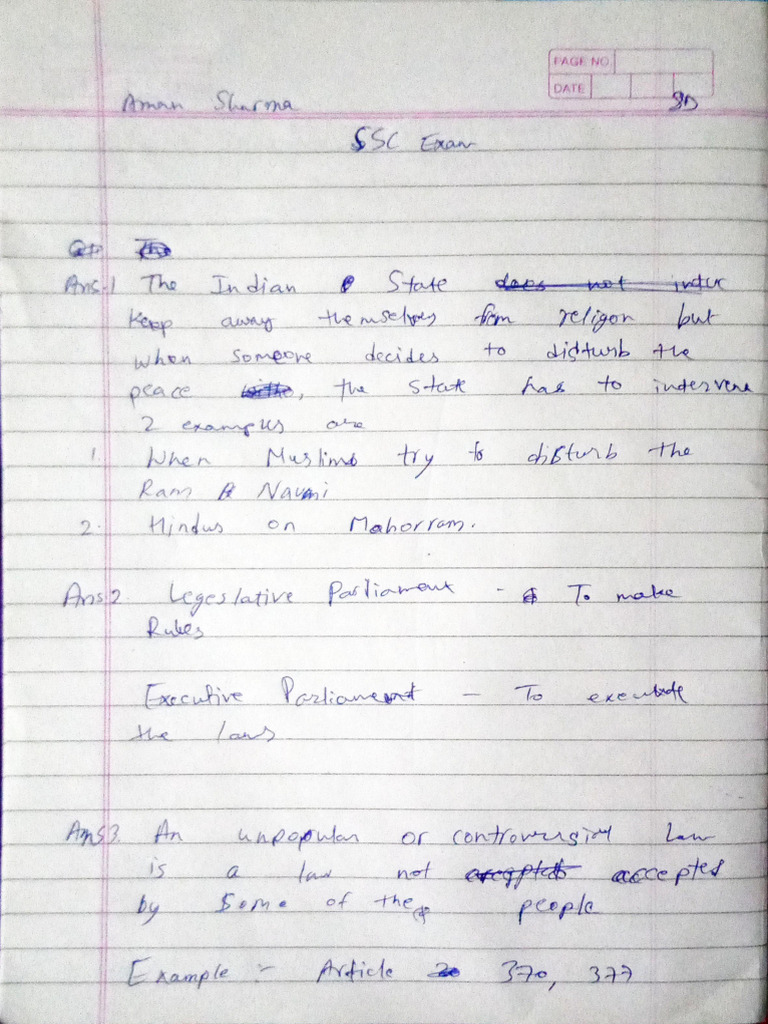 PAGE NO.
DATE
Aman Sharma
SSC Exam
Ans.1 The Indian State does not inter
Keep away themselves from religon but
when someone decides to disturb the
peace , the State has to intervene
2 examples are
1. When Muslims try to disturb the
Ram Navmi
2. Hindus on Mahorram.
Ans.2 Legeslative Parliament - To make
Rules
Executive Parliament - To execute
the laws
Ans3. An unpopular or controversial Law
is a law not accepted
by Some of the people
Example :- Article 370, 377